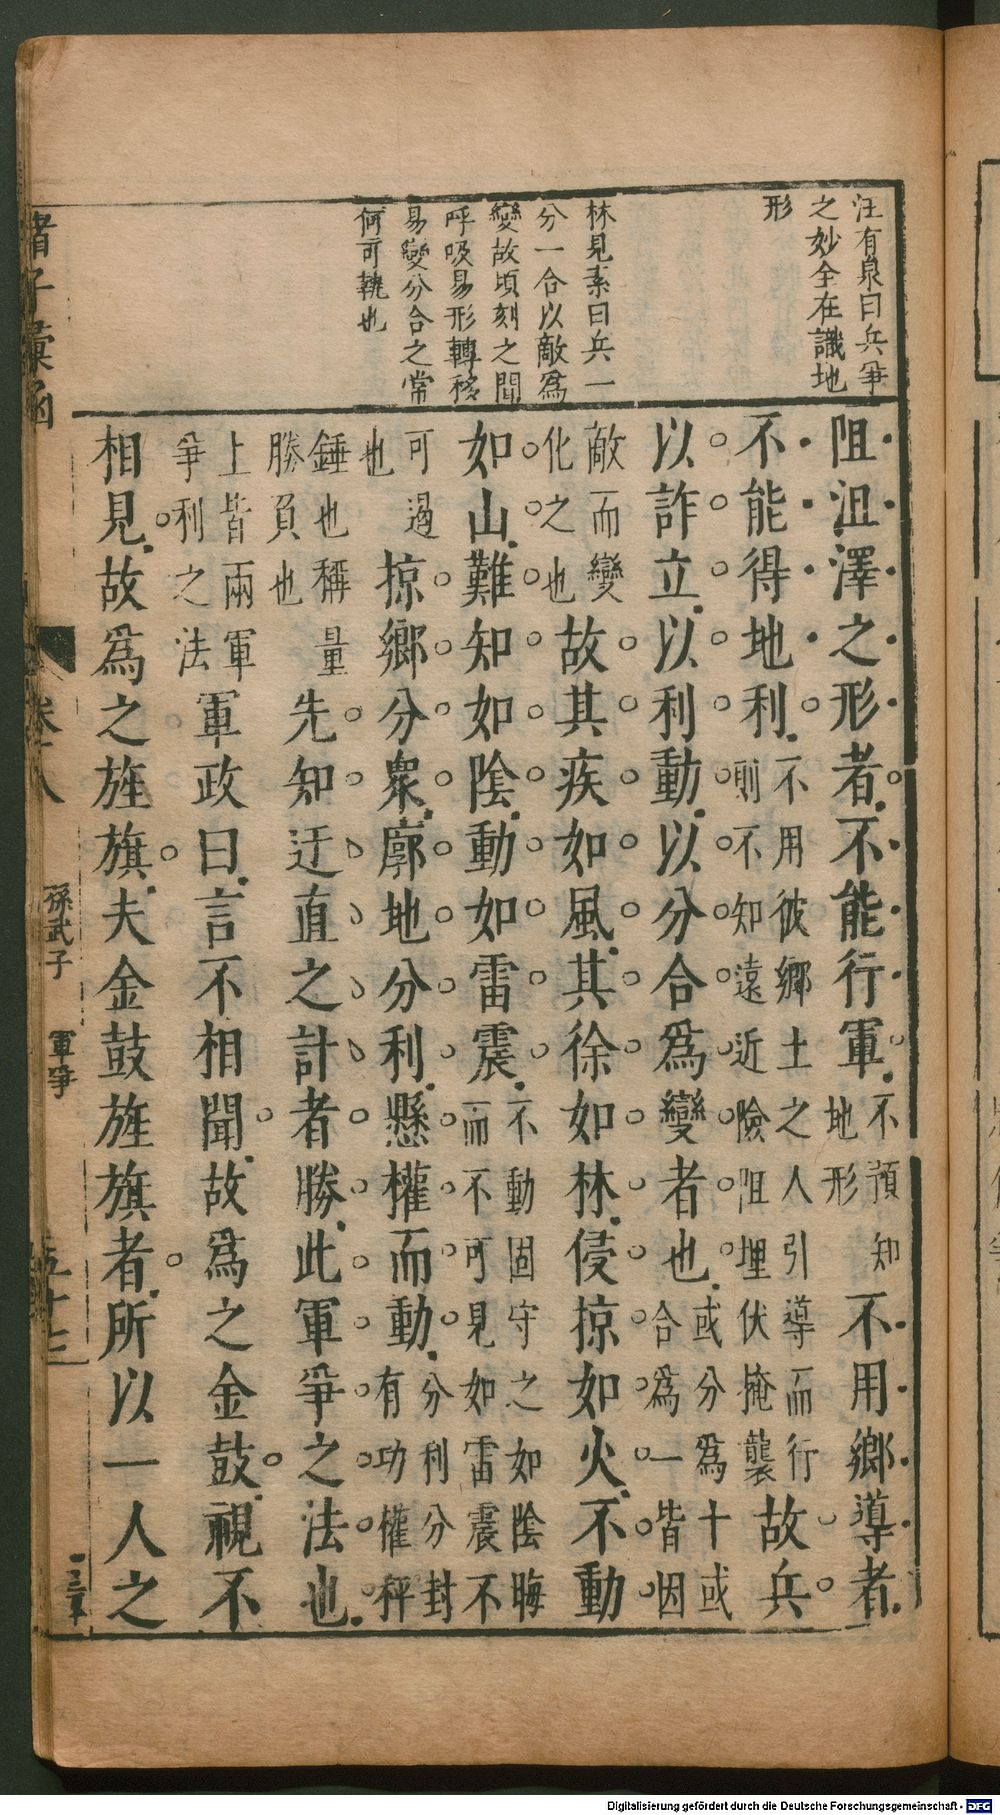 汪有泉曰兵爭
之妙全在識地
形
林見素曰兵一
分一合以敵爲
變故頃刻之間
呼吸易形轉移
易變分合之常
何可執也
阻沮澤之形者不能行軍不預知地形不用鄉導者
不能得地利不用彼鄉土之人引導而行則不知遠近險阻埋伏掩襲故兵
以詐立以利動以分合爲變者也或分爲十或合爲一皆因
敵而變化之也故其疾如風其徐如林侵掠如火不動
如山難知如陰動如雷震不動固守之如陰晦而不可見如雷震不
可遏也掠鄉分衆廓地分利懸權而動分利分封有功權秤
錘也稱量勝負也先知迂直之計者勝此軍爭之法也
上皆兩軍爭利之法軍政曰言不相聞故爲之金鼓視不
相見故爲之旌旗夫金鼓旌旗者所以一人之
諸子彙函
卷八
孫武子 軍爭
五十七
Digitalisierung gefördert durch die Deutsche Forschungsgemeinschaft - DFG